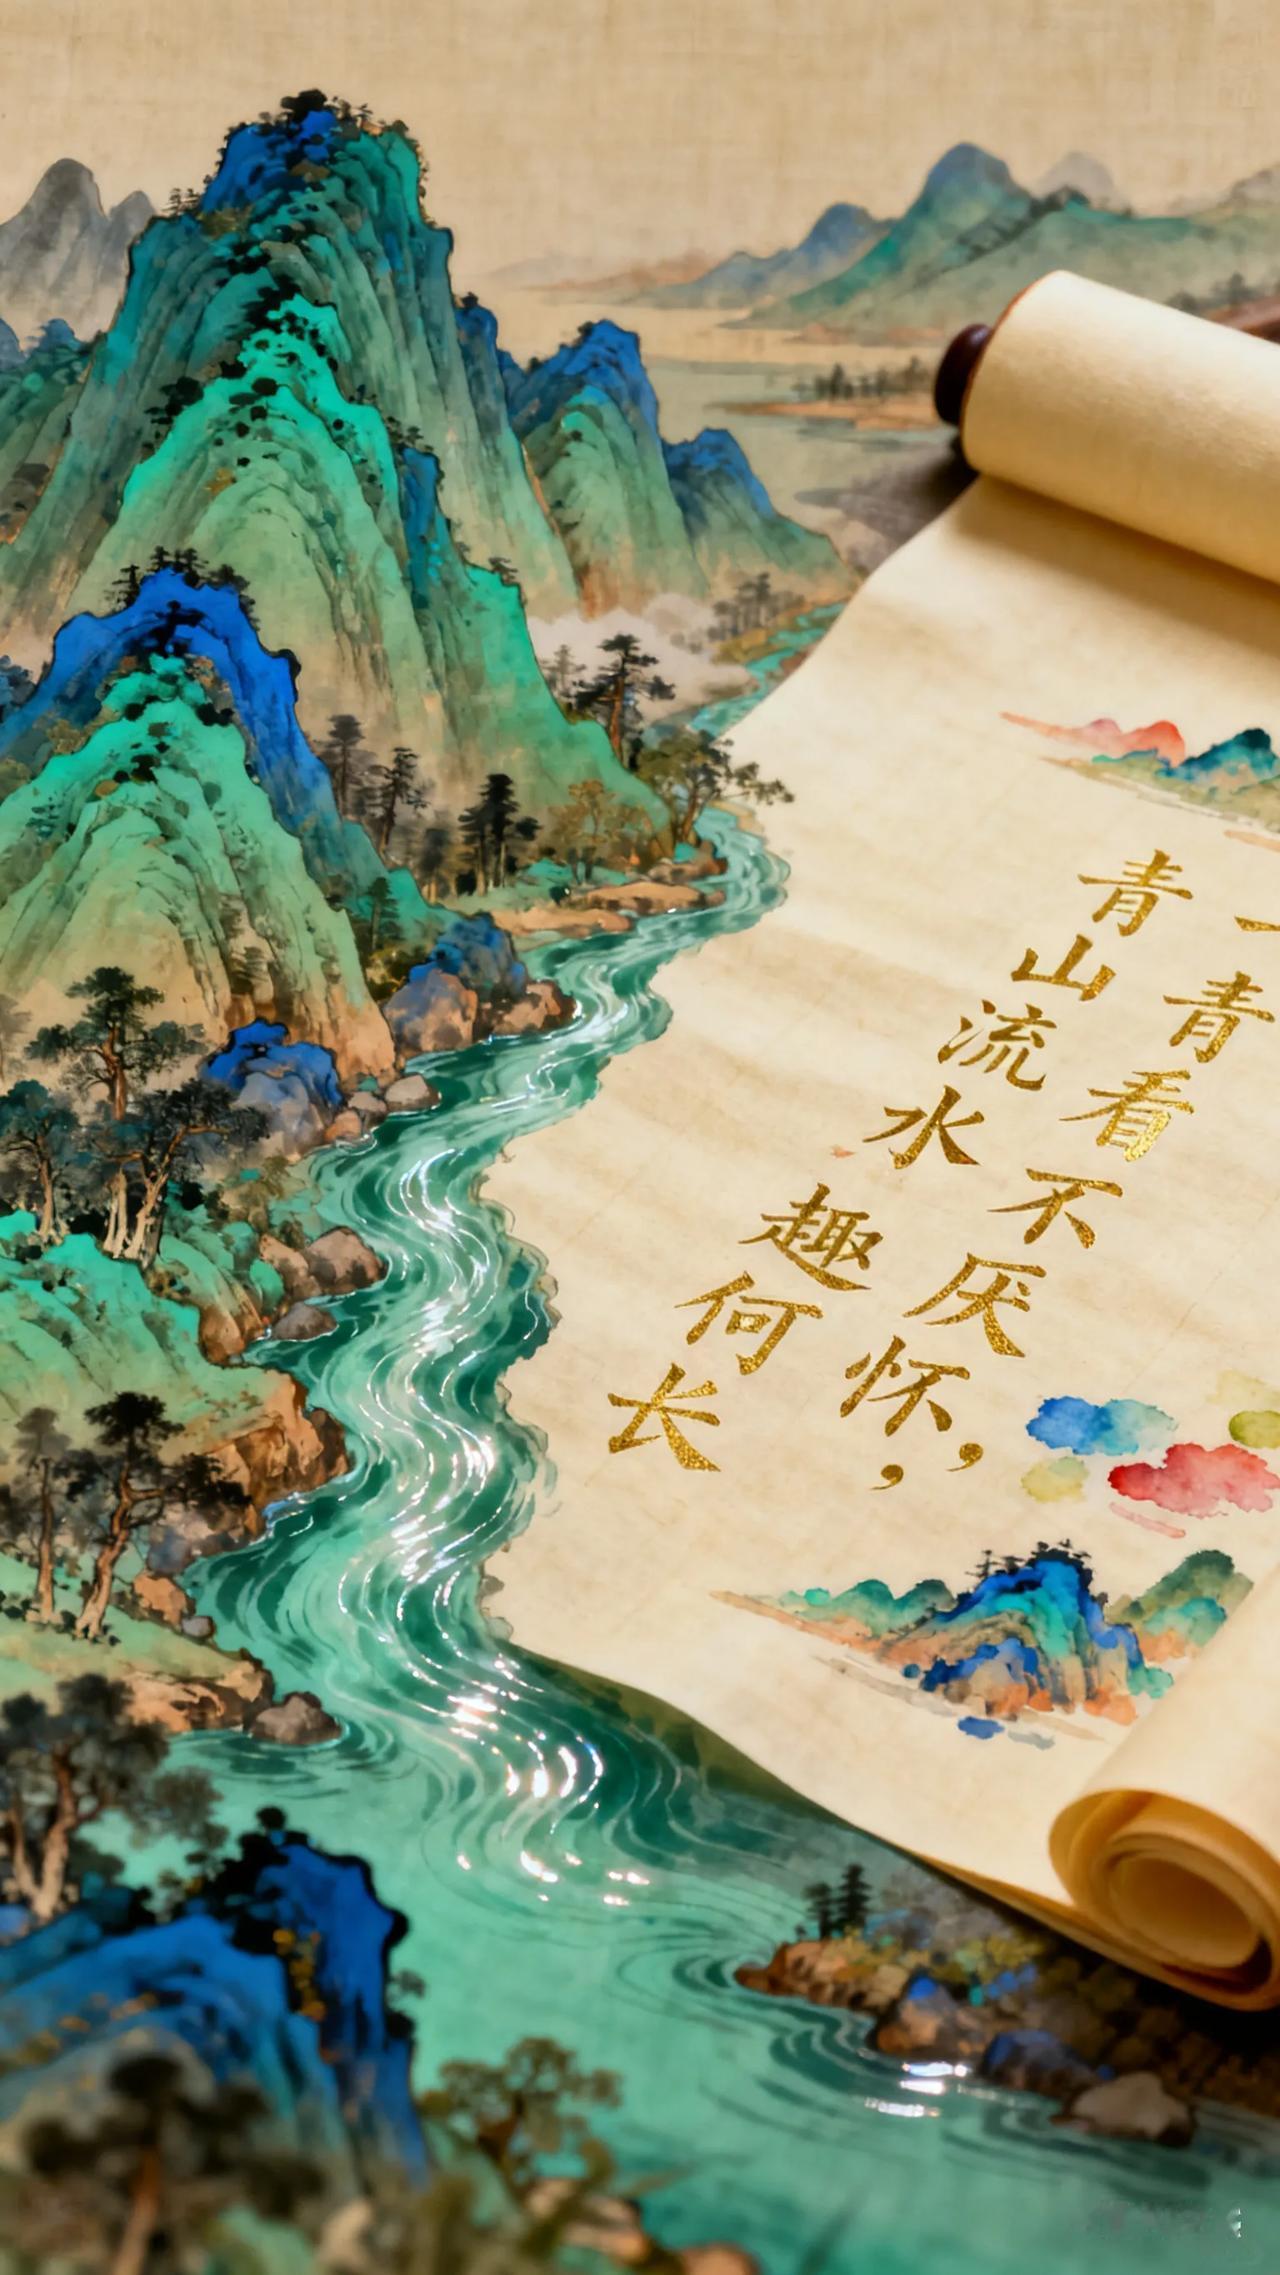 青看不厌怀，，
青山流水趣何长